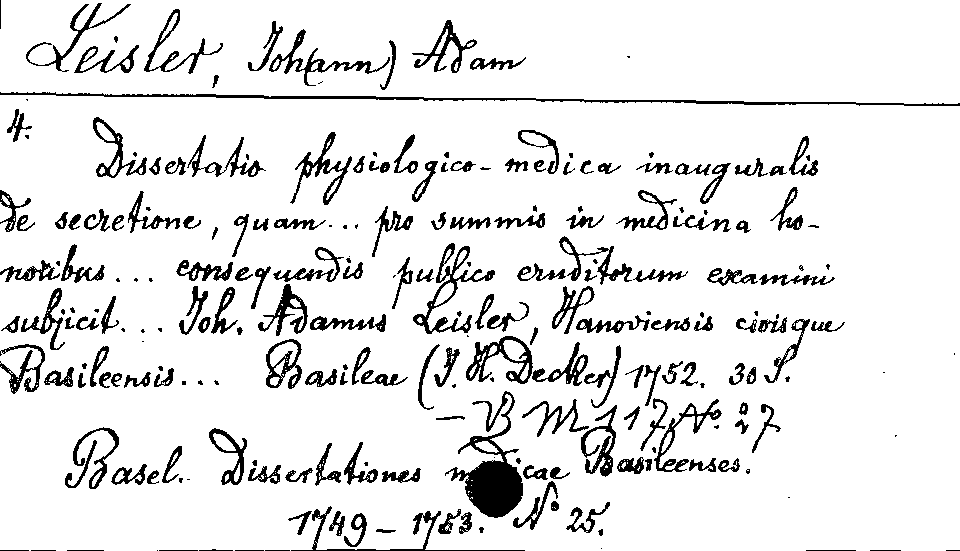 Leisler, Joh(ann) Adam
4.
Dissertatio physiologico-medica inauguralis
de secretione, quam... pro summis in medicina ho-
noribus... consequendis publico eruditorum examini
subjicit... Joh. Adamus Leisler, Hanoviensis civisque
Basileensis... Basileae (J. H. Decker) 1752. 30 S.
- B M 117 No. 27
Basel. Dissertationes medicae Basileenses.
1749 - 1753. No 25.